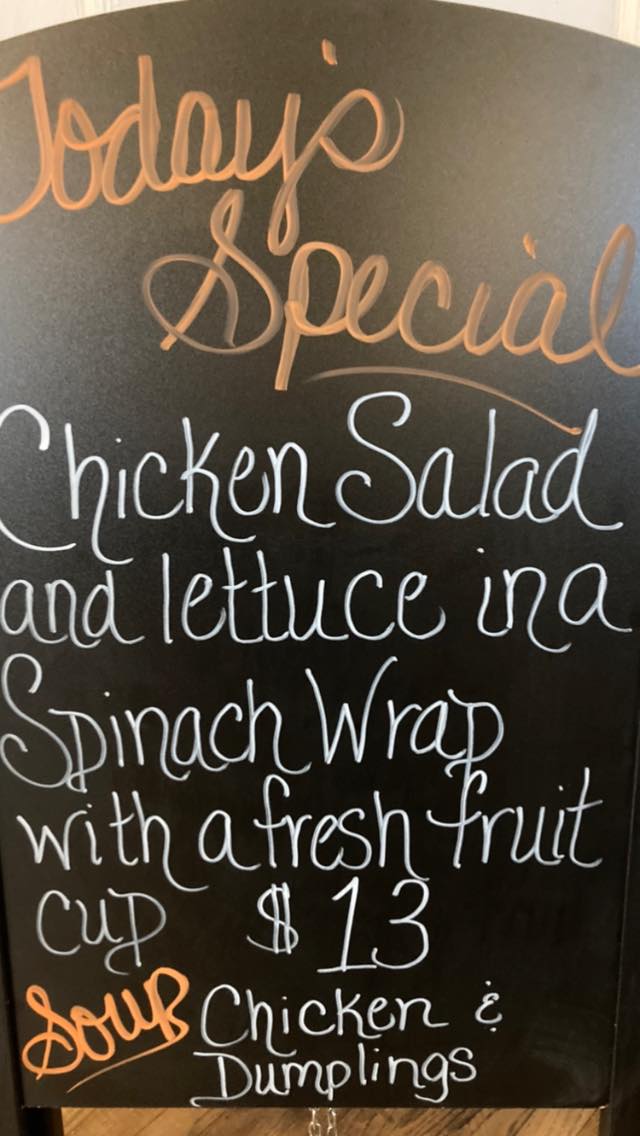 Today's
Special
Chicken Salad
and lettuce in a
Spinach Wrap
with a fresh fruit
cup $13
Soup Chicken &
Dumplings